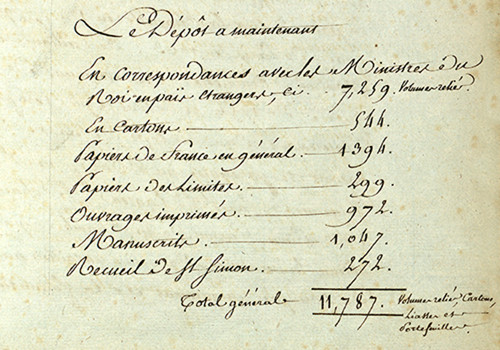 Le Dépôt a maintenant
En correspondances avec les Ministres du
Roi en païs étrangers, ci. 7,259. Volumes reliés
En Cartons 544.
Papiers de France en général. 1394.
Papiers des Limites. 299.
Ouvrages imprimés. 972.
Manuscrits. 1,047.
Recueil de St Simon. 272.
Total général 11,787. Volumes reliés, Cartons,
Liasses et
Portefeuilles.